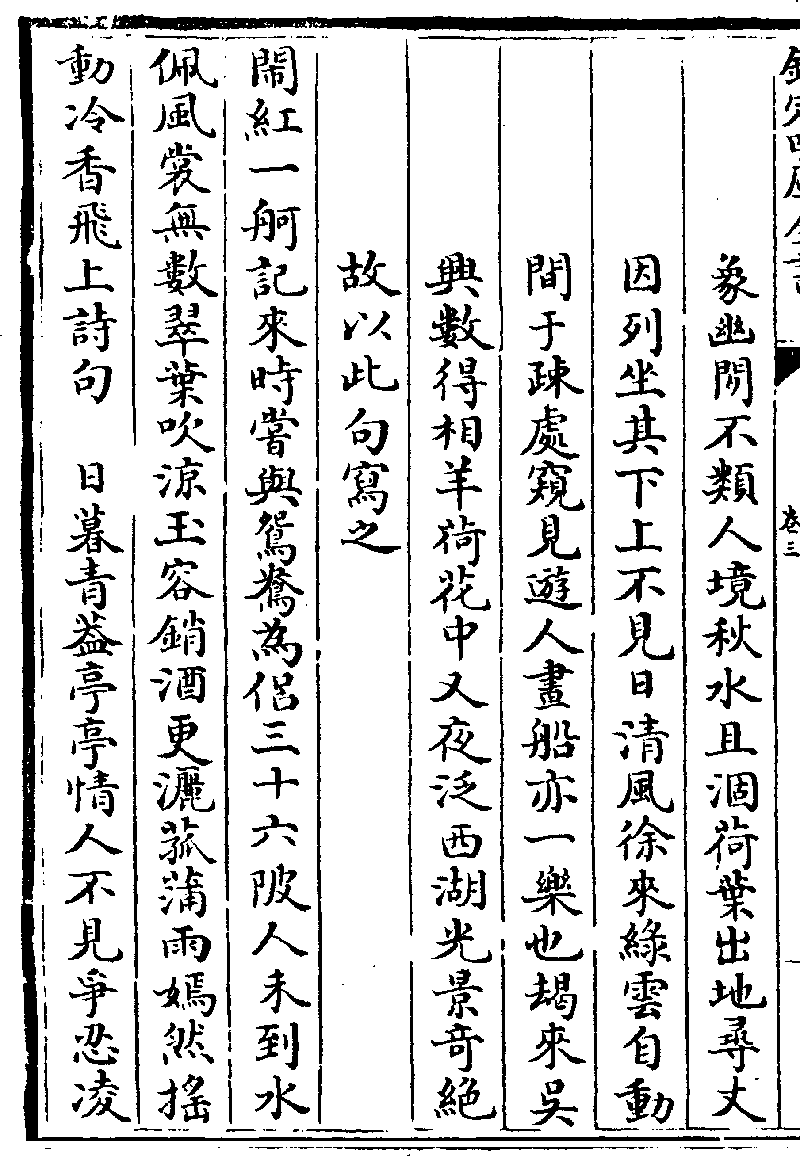 欽定四庫全書 卷三
象幽閒不類人境秋水且涸荷葉出地尋丈
因列坐其下上不見日清風徐來綠雲自動
間于疎處窺見遊人畫船亦一樂也朅來吳
興數得相羊荷花中又夜泛西湖光景奇絕
故以此句寫之
鬧紅一舸記來時嘗與鴛鴦為侶三十六陂人未到水
佩風裳無數翠葉吹涼玉容銷酒更灑菰蒲雨嫣然搖
動冷香飛上詩句　日暮青葢亭亭情人不見爭忍凌